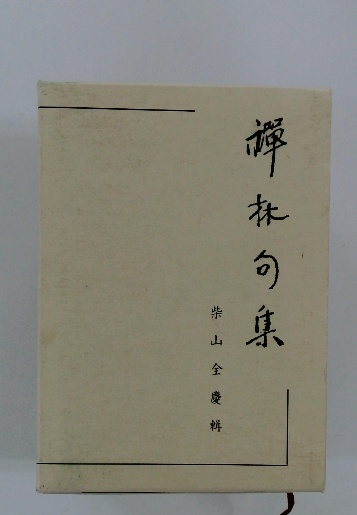 禅林句集
柴山全慶輯